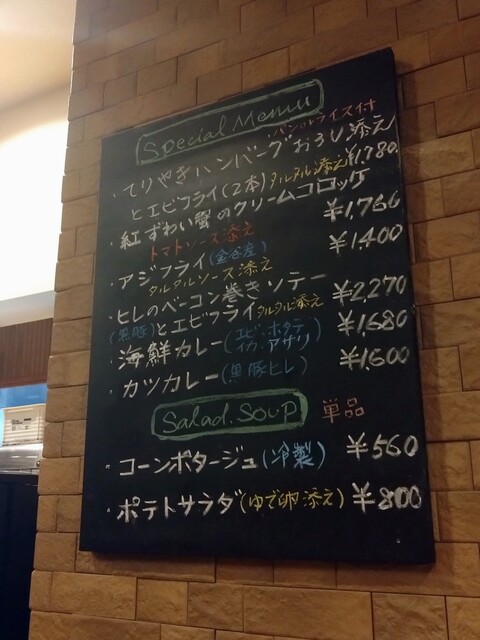 Special Menu
・パンorライス付
・てりやきハンバーグおろし添え
とエビフライ(2本)タルタル添え ¥1,780
・紅ずわい蟹のクリームコロッケ
トマトソース添え ¥1,760
・アジフライ(金谷産) ¥1,400
タルタルソース添え
・ヒレのベーコン巻きソテー
(黒豚)とエビフライタルタル添え ¥2,270
・海鮮カレー(エビ・ホタテ イカ・アサリ) ¥1,680
・カツカレー(黒豚ヒレ) ¥1,600
Salad. Soup 単品
・コーンポタージュ(冷製) ¥560
・ポテトサラダ(ゆで卵添え) ¥800